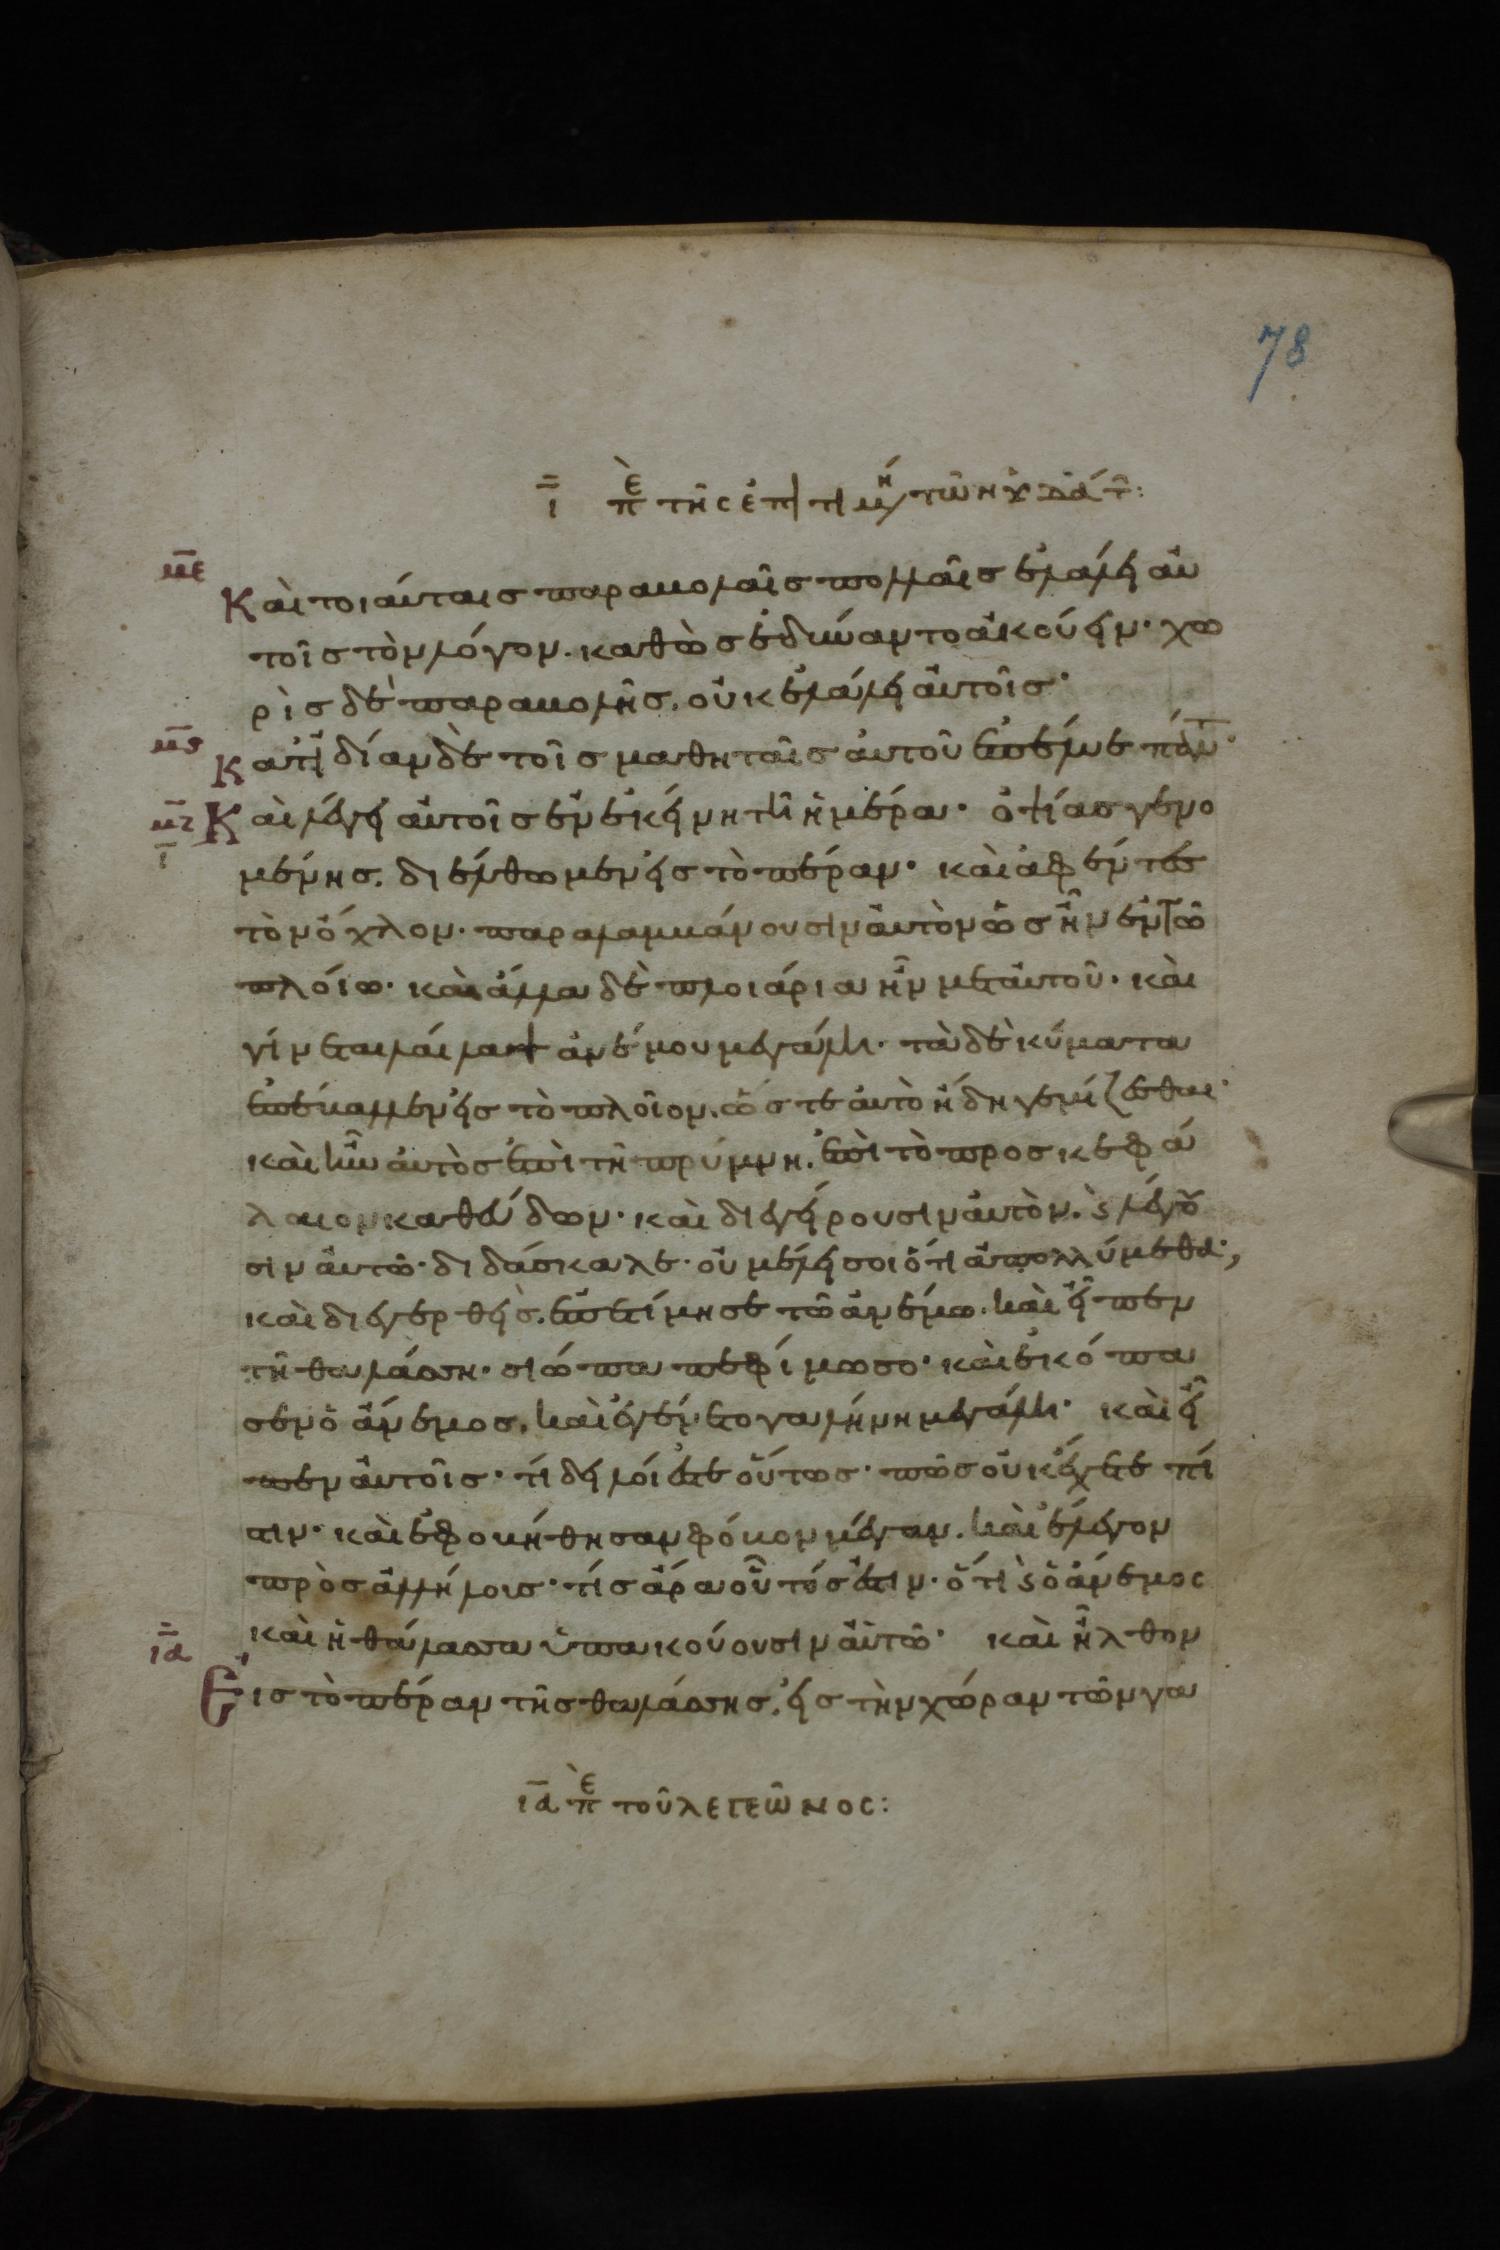 78
ι πε τῆς ἐπιτιμή τῶν ὑδάτ:
με
Καὶ τοιάυταις παραβολαῖς πολλαῖς ἐλάλει ἀυ
τοῖς τὸν λόγον. καθὼς ἐδύναντο ἀκούειν· χω
ρὶς δὲ παραβολῆς. οὐκ ἐλάλει ἀυτοῖς·
μς
Κατιδίαν δὲ τοῖς μαθηταῖς ἀυτοῦ ἐπέλυε πάντ·
μζ
Καὶ λέγει ἀυτοῖς ἐν ἐκείνη τῆ ἡμέρα· ὀψίας γενο
ι
μένης. διέλθωμεν εἰς τὸ πέραν· καὶ ἀφέντες
τὸν ὄχλον· παραλαμβάνουσιν ἀυτὸν ὡς ἦν ἐν τῶ
πλόίω· καὶ ἄλλα δὲ πλοιάρια ἦν μετ ἀυτοῦ· καὶ
γίνεται λαίλαψ ἀνέμου μεγάλη· τὰ δὲ κύματα
ἐπέβαλλεν εἰς τὸ πλοῖον. ὥστε ἀυτὸ ἤδη γεμίζεσθαι·
καὶ ἦν ἀυτὸς ἐπὶ τῆ πρύμνη. ἐπὶ τὸ προσκεφά
λαιον καθεύδων· καὶ διεγείρουσιν ἀυτὸν. ϗ λέγου
σιν ἀυτῶ· διδάσκαλε· οὐ μέλει σοι ὅτι ἀπολλύμεθα·,
καὶ διεγερθεὶς. ἐπετίμησε τῶ ἀνέμω. καὶ εἶπεν
τῆ θαλάσση· σιώπα πεφίμωσο· καὶ ἐκόπα
σεν ὁ ἄνεμος. καὶ ἐγένετο γαλήνη μεγάλη· καὶ εἶ
πεν ἀυτοῖς· τί δειλοί ἐστε οὕτως· πῶς οὐκ ἔχετε πί
στιν· καὶ ἐφοβήθησαν φόβον μέγαν. καὶ ἔλεγον
πρὸς ἀλλήλοις· τίς ἄρα οὗτός ἐστιν· ὅτι ϗ ὁ ἄνεμος
καὶ ἡ θάλασσα ὑπακούουσιν ἀυτῶ· καὶ ἦλθον
ια
Εἰς τὸ πέραν τῆς θαλάσσης. εἰς τὴν χώραν τῶν γα
ια πε τοῦ λεγεῶνος: